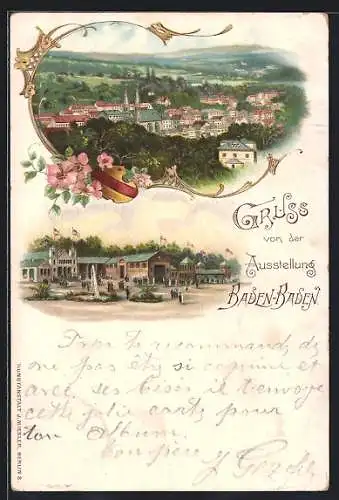 GRUSS
von der
Ausstellung
BADEN-BADEN
Papa te recommande, de
ne pas être si copine et
avec ses bises il t'envoye
cette jolie carte pour
ton Album.
Ton père J.
KUNSTANSTALT J. MIESLER, BERLIN S.